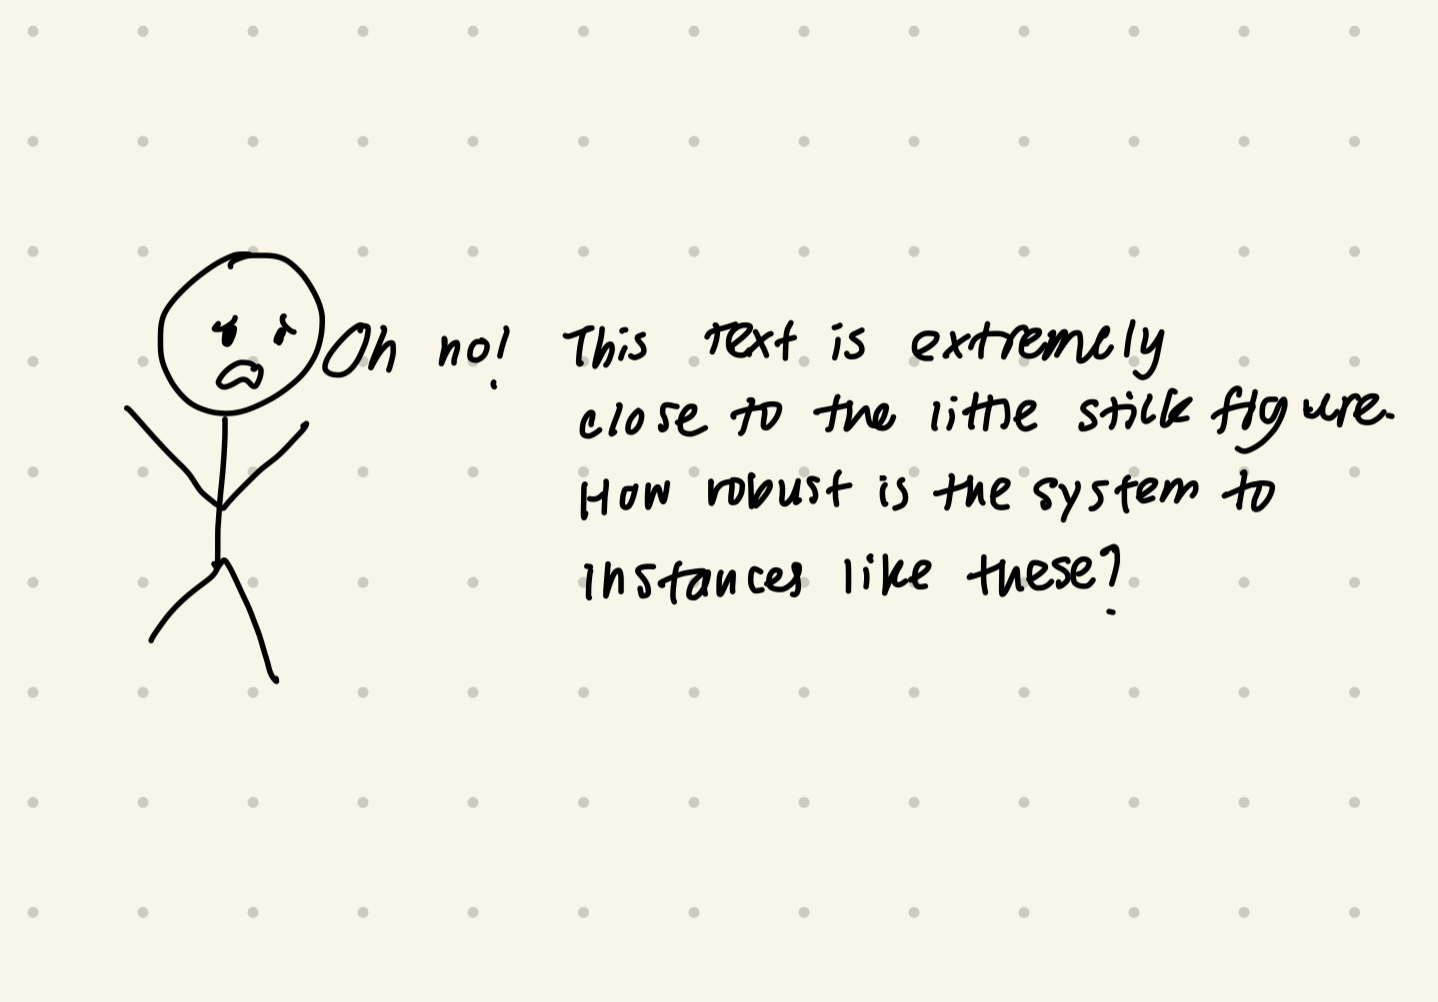 Oh no! This text is extremely
close to the little stick figure.
How robust is the system to
instances like these?